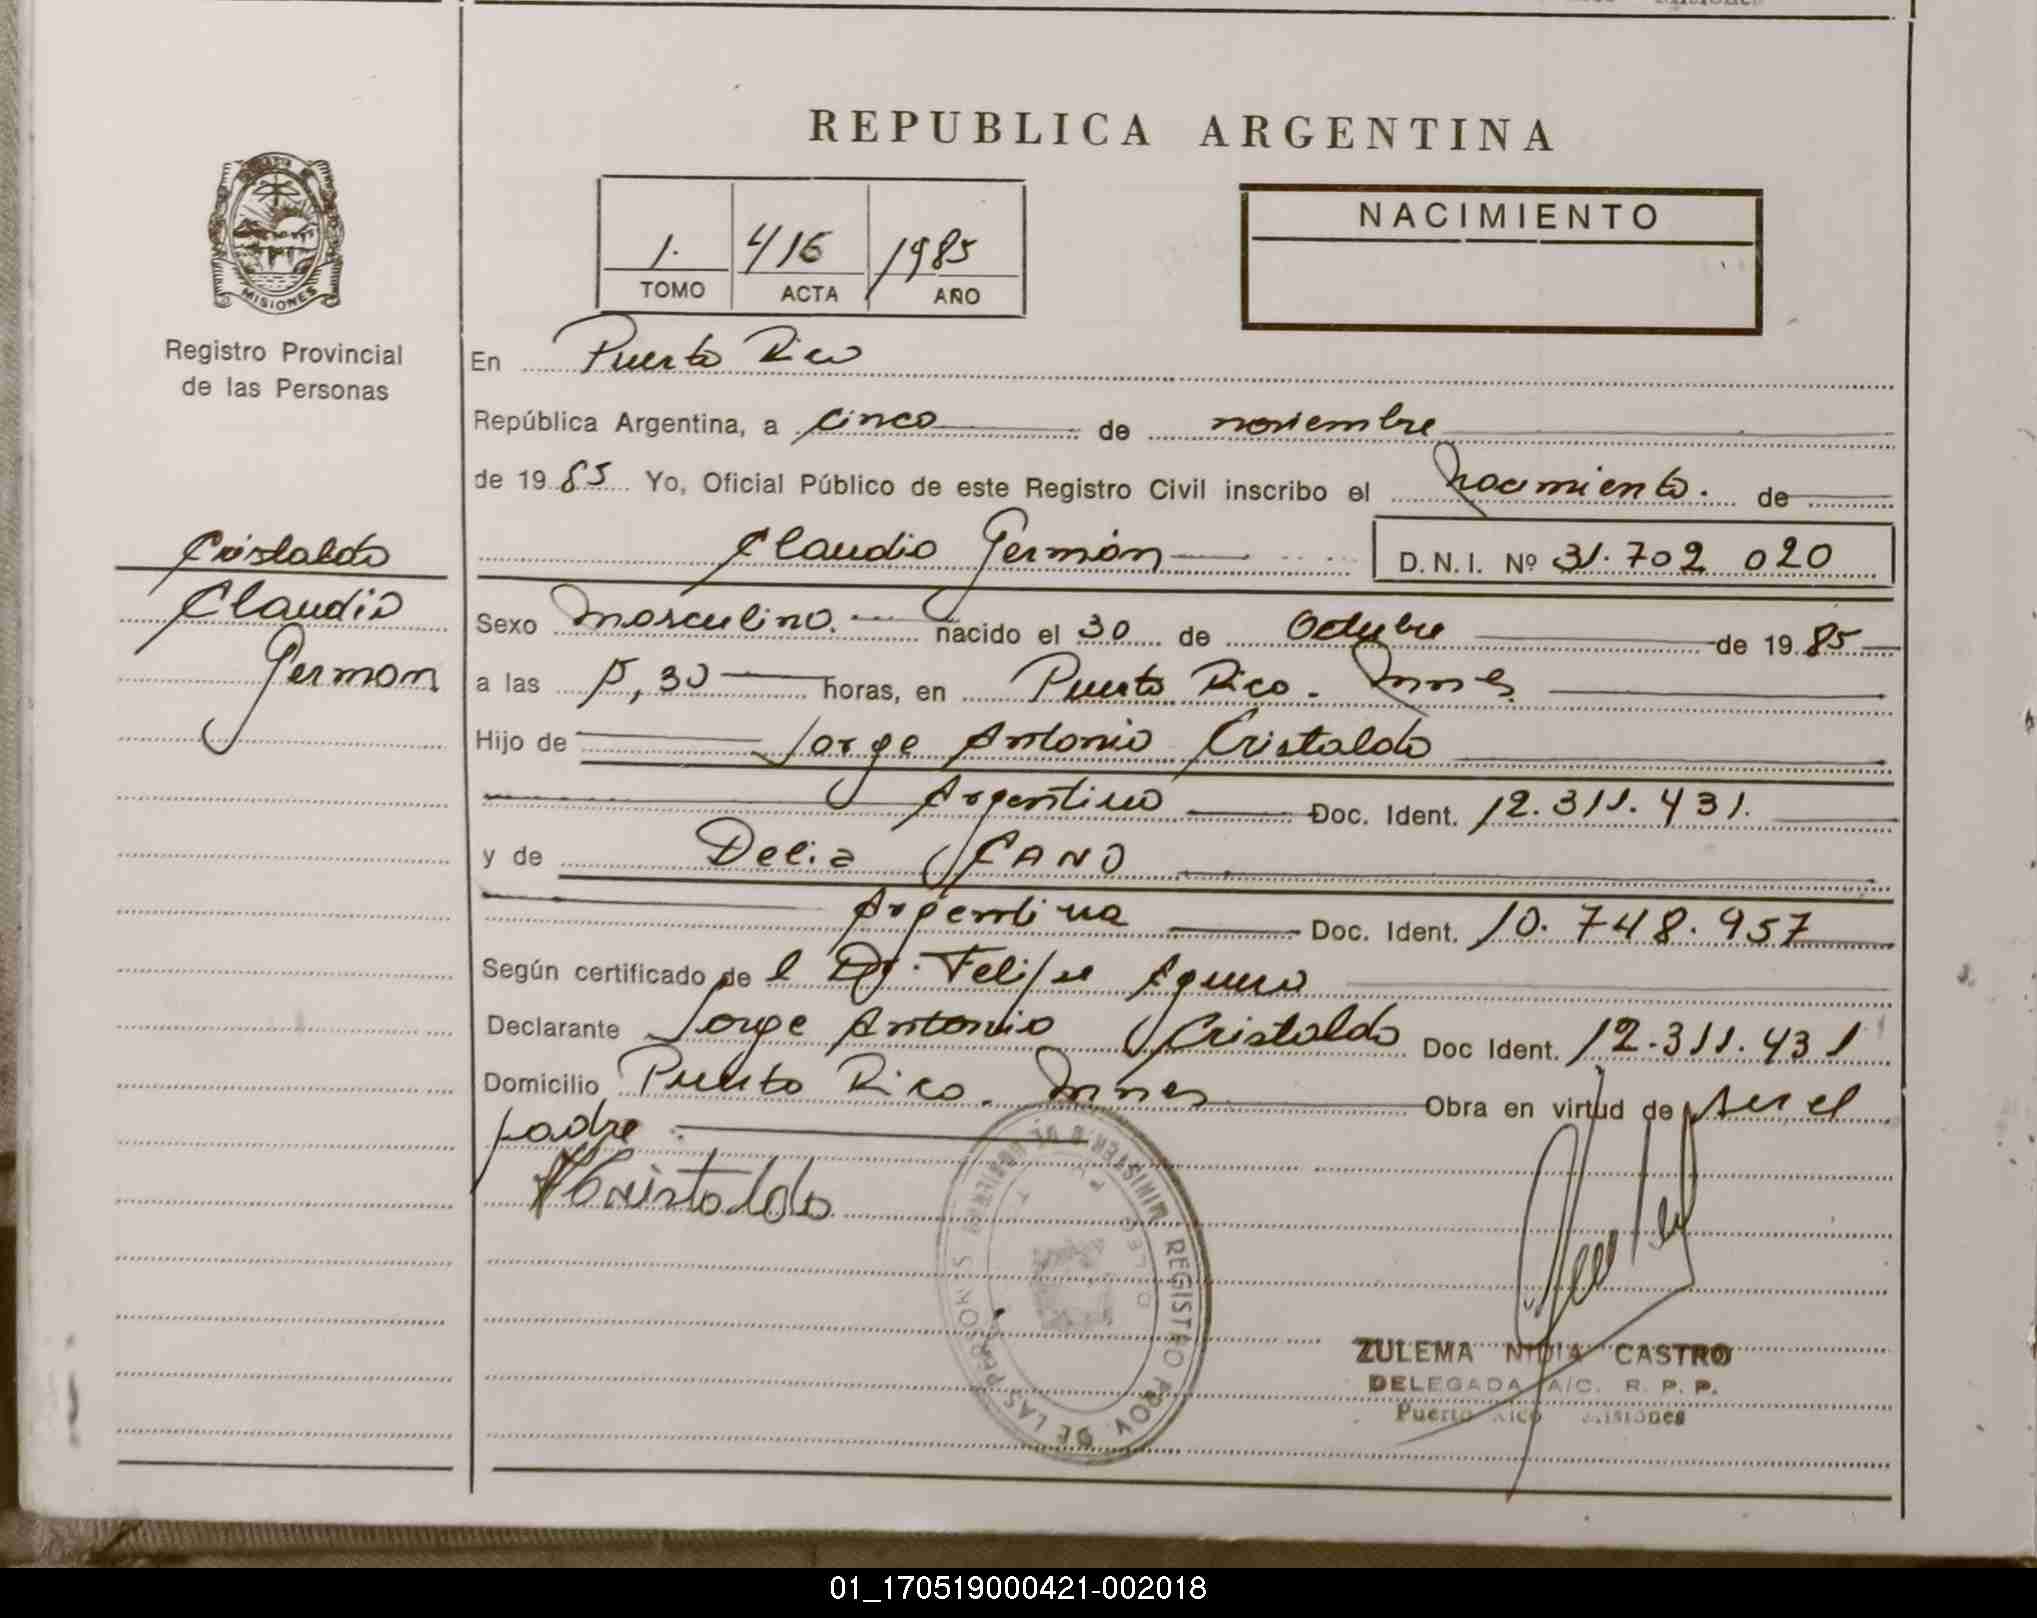 REPUBLICA ARGENTINA
MISIONES
Registro Provincial
de las Personas
1. 416 1985
TOMO ACTA AÑO
NACIMIENTO
En Puerto Rico
República Argentina, a cinco de noviembre
de 1985 Yo, Oficial Público de este Registro Civil inscribo el Nacimiento. de
Claudio Germán D.N.I. Nº 31.702 020
Cristaldo
Claudio
German
Sexo Masculino. nacido el 30 de Octubre de 1985
a las 5,30 horas, en Puerto Rico. Mnes
Hijo de Jorge Antonio Cristaldo
Argentino Doc. Ident. 12.311.431.
y de Delia CANO
Argentina Doc. Ident. 10.748.957
Según certificado de l Dr. Felipe Aguero
Declarante Jorge Antonio Cristaldo Doc Ident. 12.311.431
Domicilio Puerto Rico. Mnes Obra en virtud de ser el
padre.
Cristaldo
MINISTERIO DE GOBIERNO
REGISTRO PROV. DE LAS PERSONAS
ZULEMA NIDIA CASTRO
DELEGADA A/C. R. P. P.
Puerto Rico Misiones
01_170519000421-002018